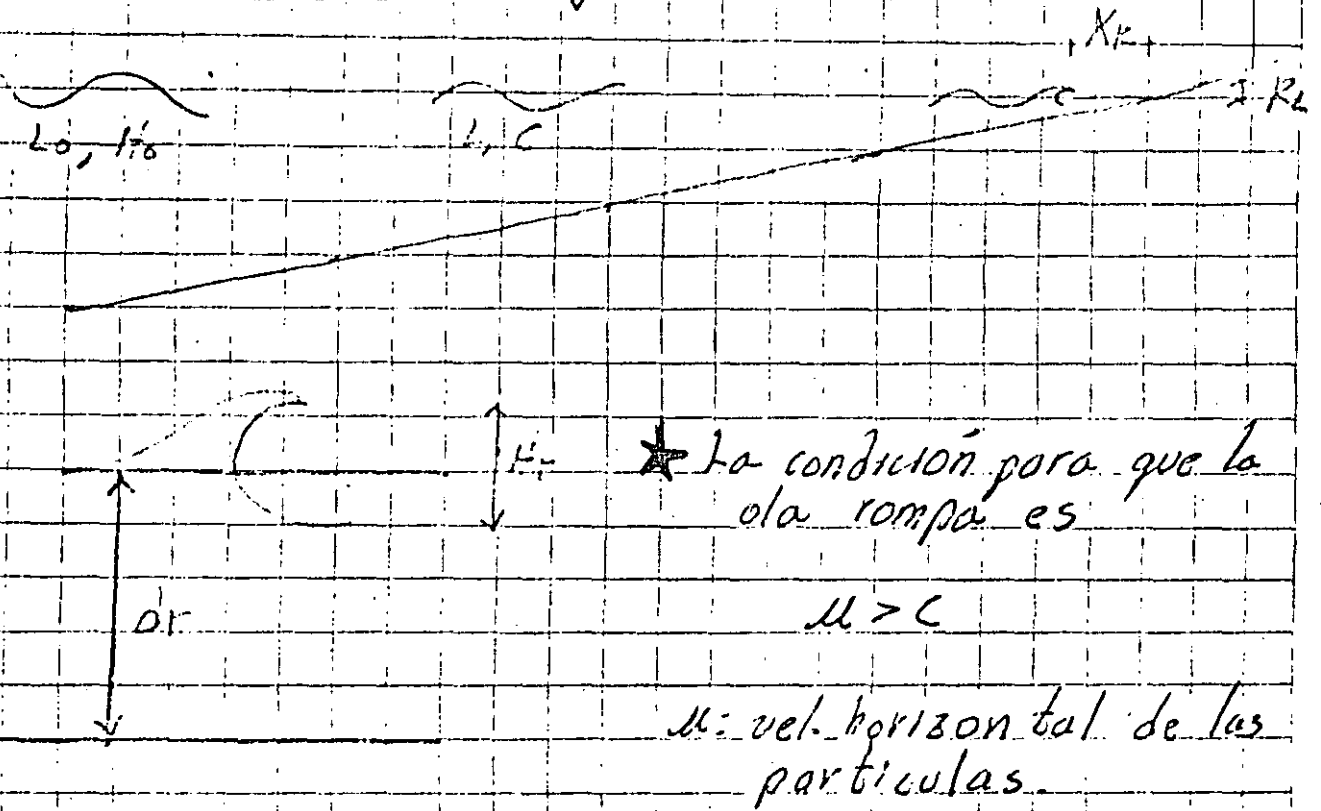 Xr
Lo, Ho
L, C
Hr
★ La condición para que la
ola rompa es
Dr
u > C
u: vel. horizontal de las
partículas.